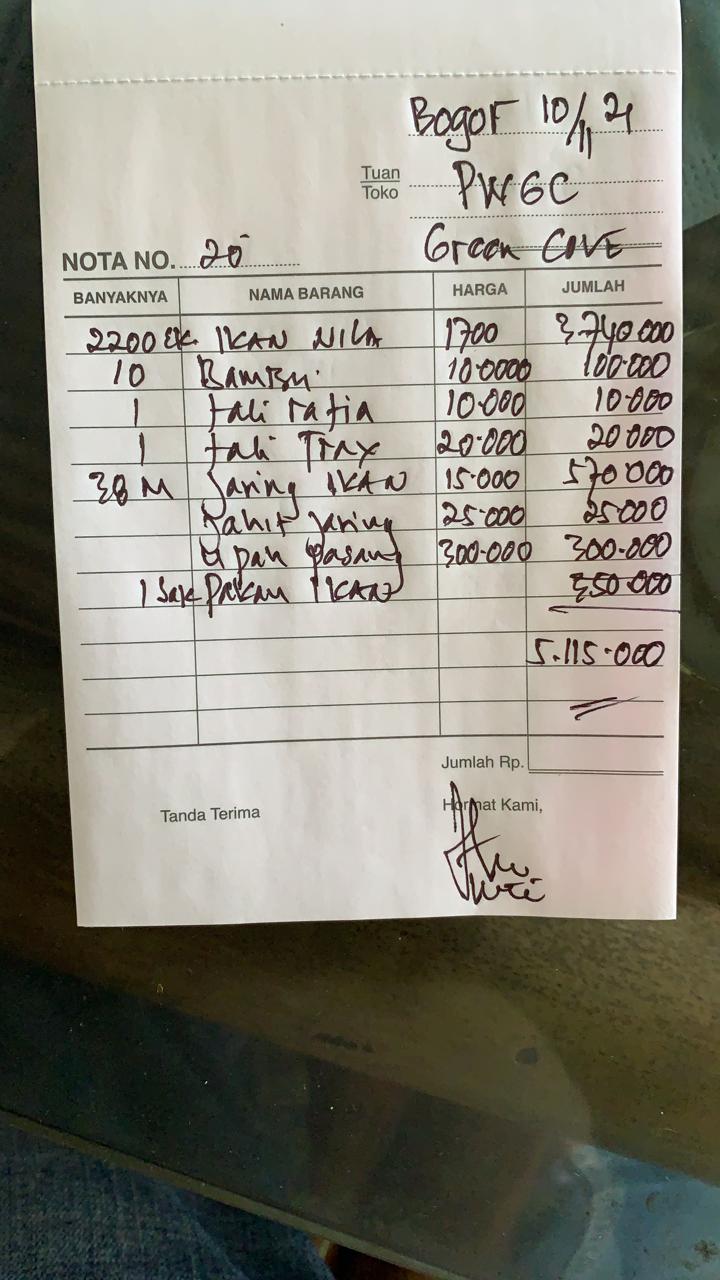 Bogor 10/11 21
Tuan
Toko PWGC
Green COVE
NOTA NO. 20
BANYAKNYA NAMA BARANG HARGA JUMLAH
2200 EK IKAN NILA 1700 3.740.000
10 Bambu 10.0000 100.000
1 tali rafia 10.000 10.000
1 tali Trax 20.000 20.000
38 M Jaring IKAN 15.000 570.000
Jahit jaring 25.000 25.000
Upah pasang 300.000 300.000
1 Sak PAKAN IKAN 350.000
5.115.000
Jumlah Rp.
Tanda Terima Hormat Kami,